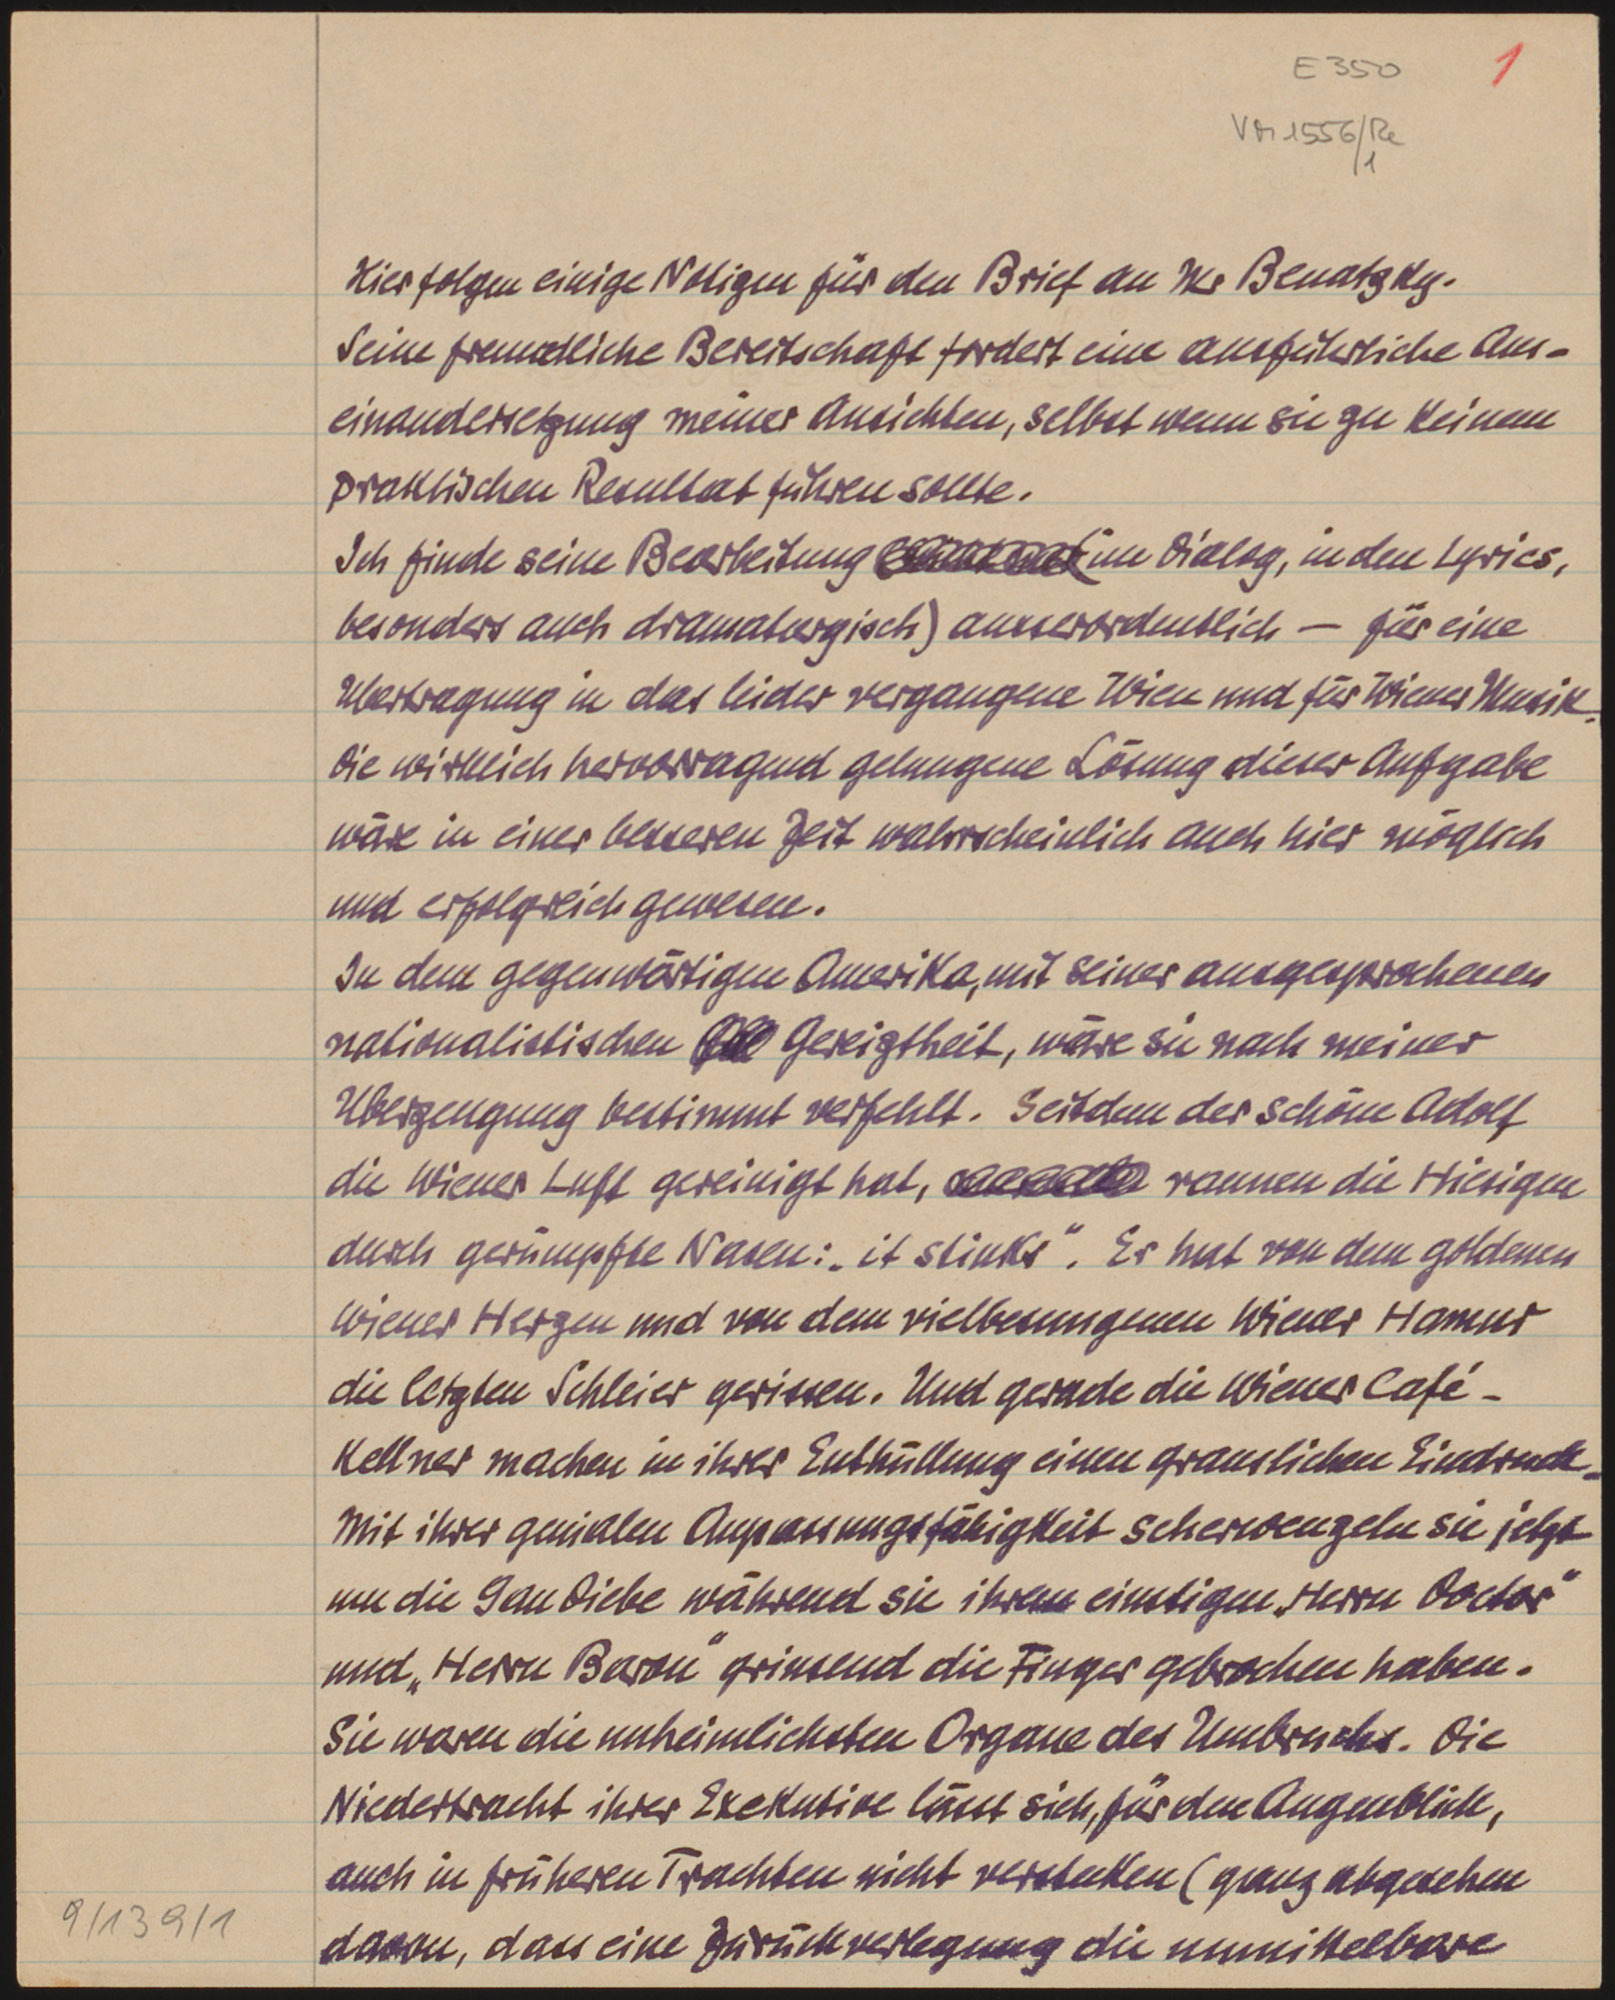 E 350
1
Vm 1556/Re
1
Hier folgen einige Notizen für den Brief an Mr Benatzky.
Seine freundliche Bereitschaft fordert eine ausführliche Aus-
einandersetzung meiner Ansichten, selbst wenn sie zu keinem
praktischen Resultat führen sollte.
Ich finde seine Bearbeitung (im Dialog, in den Lyrics,
besonders auch dramaturgisch) ausserordentlich — für eine
Übertragung in das leider vergangene Wien und für Wiener Musik.
Die wirklich hervorragend gelungene Lösung dieser Aufgabe
wäre in einer besseren Zeit wahrscheinlich auch hier möglich
und erfolgreich gewesen.
In dem gegenwärtigen Amerika, mit seiner ausgesprochenen
nationalistischen Gereiztheit, wäre sie nach meiner
Überzeugung bestimmt verfehlt. Seitdem der schöne Adolf
die Wiener Luft gereinigt hat, raunen die Hiesigen
durch gerümpfte Nasen: „it stinks". Er hat von dem goldenen
Wiener Herzen und von dem vielbesungenen Wiener Humor
die letzten Schleier gerissen. Und gerade die Wiener Café-
Kellner machen in ihrer Enthüllung einen grauslichen Eindruck.
Mit ihrer genialen Anpassungsfähigkeit scherwenzeln sie jetzt
um die Gau Diebe während sie ihrem einstigen „Herrn Doctor"
und „Herrn Baron" grinsend die Finger gebrochen haben.
Sie waren die unheimlichsten Organe des Umbruchs. Die
Niedertracht ihrer Exekutive lässt sich, für den Augenblick,
auch in früheren Trachten nicht verstecken (ganz abgesehen
davon, dass eine Zurückverlegung die unmittelbare
9/139/1